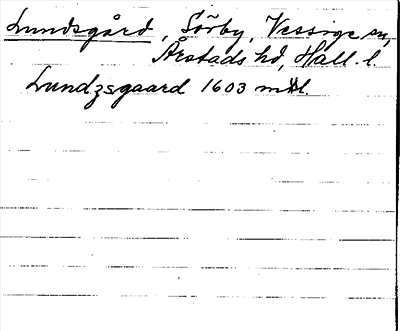 Lundsgård, Sörby, Vessige sn,
Årstads hd, Hall. l.
Lundzsgaard 1603 mtl.